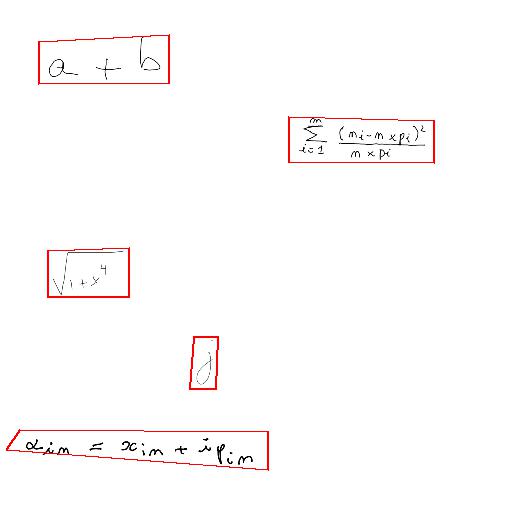 a + b
\sum_{i=1}^{m} \frac{(n_i - n \times p_i)^2}{n \times p_i}
\sqrt{1 + x^4}
\alpha_{in} = x_{in} + i p_{in}